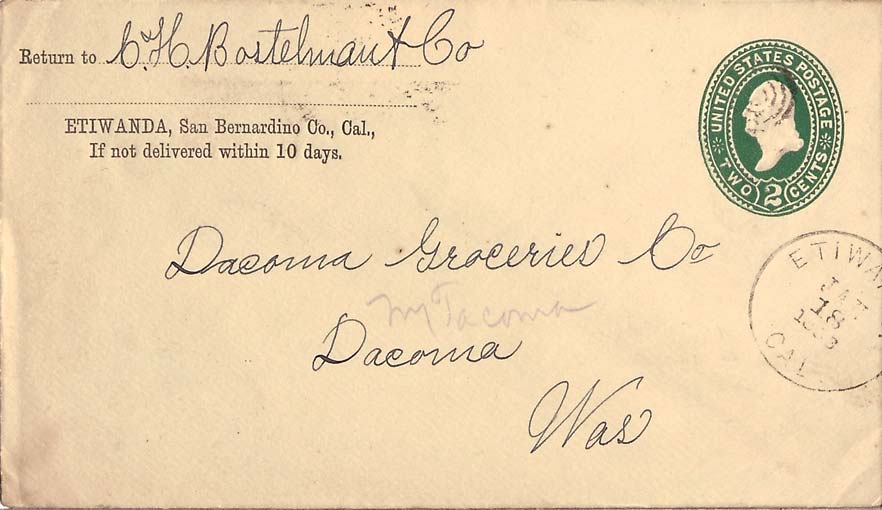 Return to C. H. Bostelman & Co
ETIWANDA, San Bernardino Co., Cal.,
If not delivered within 10 days.
UNITED STATES POSTAGE
TWO 2 CENTS
Dacoma Groceries Co
Tacoma
Dacoma
Was
ETIWA
JAN
18
CAL